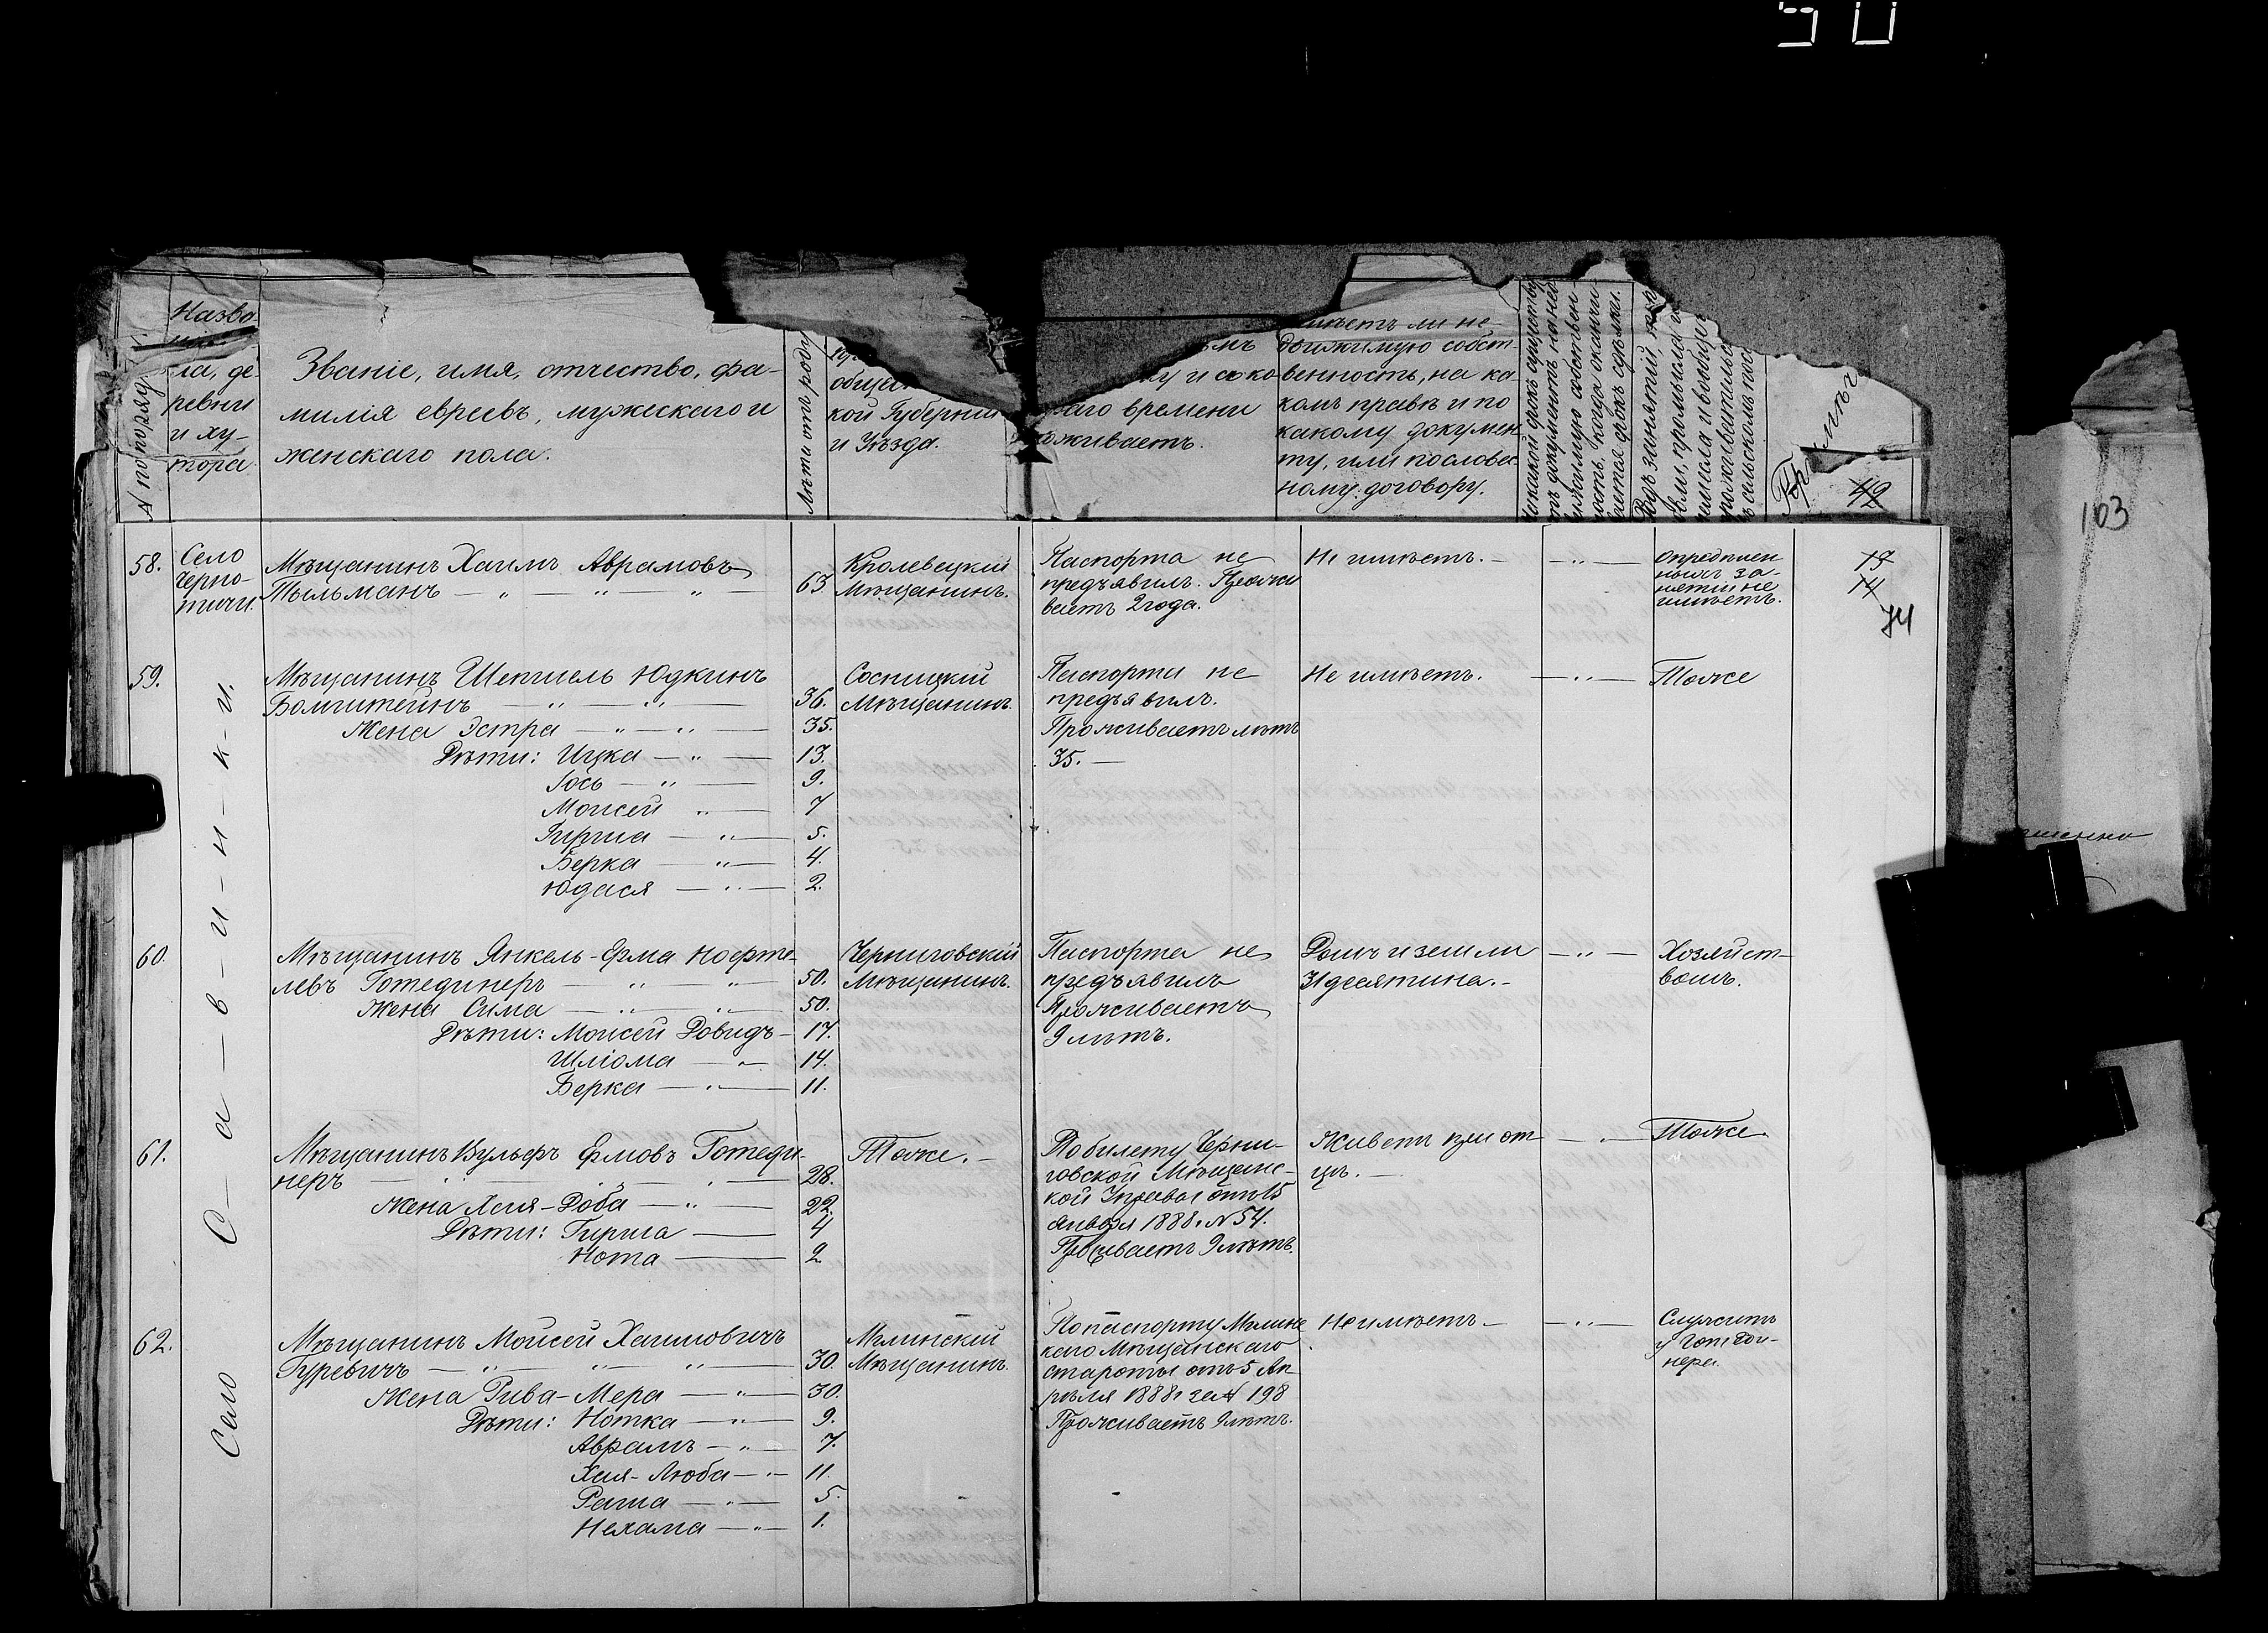 50
Назва-
ла, де-
ревни
и ху-
тора.
№ по поряд
Званіе, имя, отчество, фа-
милія евреевъ, мужескаго и
женскаго пола.
Лѣта отъ роду
общес
кой Губерніи
и Уѣзда.
му и с како-
раго времени
оживаетъ.
имѣетъ ли не-
движимую собст-
венность, на ка-
комъ правѣ и по
какому докумен-
ту, или пословес-
ному договору.
42
103
58.
Село
Черно-
тичи.
Мѣщанинъ Хаимъ Аврамовъ
Тыльманъ — „ — „ — „ — 63
Кролевецкій
Мѣщанинъ.
Паспорта не
предъявилъ. Прожи
ваетъ 2 года.
Не имѣетъ. —
— „ —
Опредѣлен
ныхъ за-
нятій не
имѣетъ.
13
14
74
Село С-а-в-и-н-к-и.
59.
Мѣщанинъ Шепшель Юдкинъ
Бомштейнъ — „ — „ — 36.
Жена Эстра — „ — „ — 35.
Дѣти: Ицка — „ — 13.
Іось — „ — 9.
Моисей „ — 7
Гирша — „ — 5.
Берка — „ — 4.
Юдася — „ — 2.
Сосницкій
Мѣщанинъ.
Паспорта не
предъявилъ.
Проживаетъ лѣтъ
35. —
Не имѣетъ.
— „ —
Тоже
60.
Мѣщанинъ Янкель-Ерма Нофте-
левъ Готединеръ — „ — „ — 50.
Жена Сима — „ — „ — 50.
Дѣти: Моисей Довидъ — 17.
Шліома — „ 14.
Берка — „ — 11.
Черниговскій
Мѣщанинъ.
Паспорта не
предъявилъ
Проживаетъ
9 лѣтъ.
Домъ и земли
31 десятина. —
— „ —
Хозяйст-
вомъ.
61.
Мѣщанинъ Вульфъ Ермовъ Готеди-
неръ — „ — „ — 28.
Жена Хая-Доба — „ — 22.
Дѣти: Гирша — 4
Нота — 2
Тоже. —
По билету Черни-
говской Мѣщанс-
кой Управы отъ 15
Января 1888 г. № 54.
Проживаетъ 9 лѣтъ.
Живетъ при от-
цѣ. —
— „ —
Тоже.
62.
Мѣщанинъ Моисей Хаимовичъ
Гуревичъ — „ — „ — „ — 30.
Жена Рива-Мера — „ — 30.
Дѣти: Нотка — „ — 9.
Аврамъ — „ — 7.
Хая-Люба — „ — 11.
Раша — „ — 5.
Нехама — „ — 1.
Мглинскій
Мѣщанинъ.
По паспорту Мглинс
каго Мѣщанскаго
старосты отъ 5 Ап
рѣля 1888 г за № 198
Проживаетъ 9 лѣтъ.
Не имѣетъ —
— „ —
Служитъ
у Готеди-
нера.